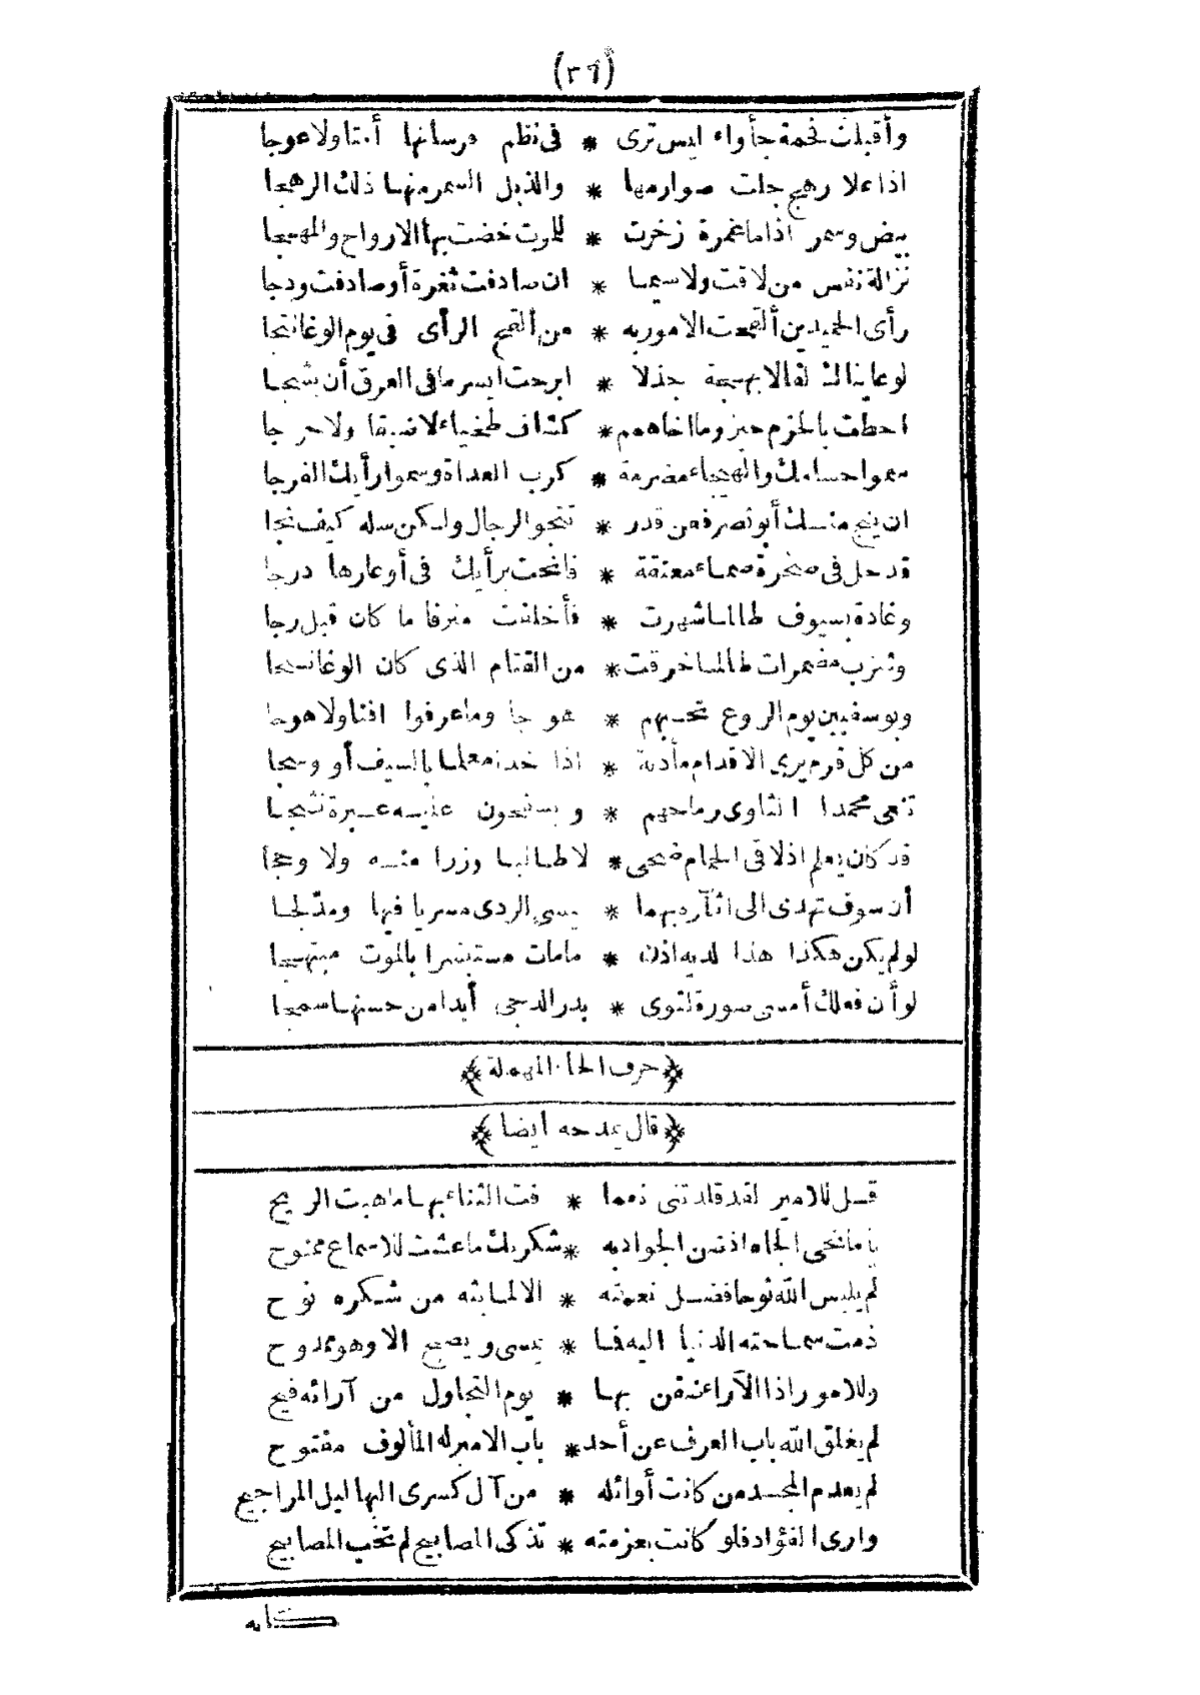 (٣٦)
وأقبلت فخمة جأواء ليس ترى * فى نظم فرسانها أمتا ولا عوجا
اذا علا رهج جلت صوارمها * والذبل السمر منها ذلك الرهجا
بيض وسمر اذا ما غمرة زخرت * للموت خضت بها الارواح والمهجا
نزالة نفس من لاقت ولا سيما * ان صادفت ثغرة أو صادفت ودجا
رأى الحميدين ألقحت الامور به * من ألقح الرأى فى يوم الوغا نتجا
لو عاينالك لقالا بهجة جذلا * ابرحت ايسر ما فى العرق أن يشجا
احطت بالحزم حيزوما اخاهمم * كشاف طخياء لا ضيقا ولا حرجا
سموا حسامك والهيجاء مضرمة * كرب العداة وسموا رأيك الفرجا
ان ينج منك أبو نصر فعن قدر * تنجو الرجال ولكن سله كيف نجا
قد حل فى صخرة صماء معنقة * فانحت برأيك فى أوعارها درجا
وغادة بسيوف طالما شهرت * فأخلقت مترفا ما كان قبل رجا
وشزب مضمرات طالما خرقت * من القتام الذى كان الوغا نسجا
ويوسفيين يوم الروع تحسبهم * هوجا وما عرفوا افنا ولا هوجا
من كل قرم يرى الاقدام مأدبة * اذا خدا معلما بالسيف أو وسجا
تنعى محمدا الثاوى رماحهم * ويسفحون عليه عبرة نشجا
قد كان يعلم اذ لاقى الحمام ضحى * لا طالبا وزرا منه ولا وحجا
أن سوف تهدى الى اثآره بهما * يمسي الردى مسريا فيها ومدّلجا
لو لم يكن هكذا هذا لديه اذن * ما مات مستبشرا بالموت مبتهجا
لو أن فعلك أمسى صورة لثوى * بدر الدجى أبدا من حسنها سمجا
﴿حرف الحاء المهملة﴾
﴿قال يمدحه أيضا﴾
قل للامير لقد قلدتنى نعما * فت الثناء بها ما هبت الريح
يا مانحى الجاه اذ ضن الجواد به * شكريك ما عشت للاسماع ممنوح
لم يلبس الله نوحا فضل نعمته * الا لما بثه من شكره نوح
ذمت سماحته الدنيا اليه فما * يمسى ويصبح الا وهو ممدوح
وللامور اذا الآراء ضقن بها * يوم التجاول من آرائه فيح
لم يغلق الله باب العرف عن أحد * باب الامير له المألوف مفتوح
لم يعدم المجد من كانت أوائله * من آل كسرى البهاليل المراجيح
وارى الفؤاد فلو كانت بعزمته * تذكى المصابيح لم تخب المصابيح
كتابه